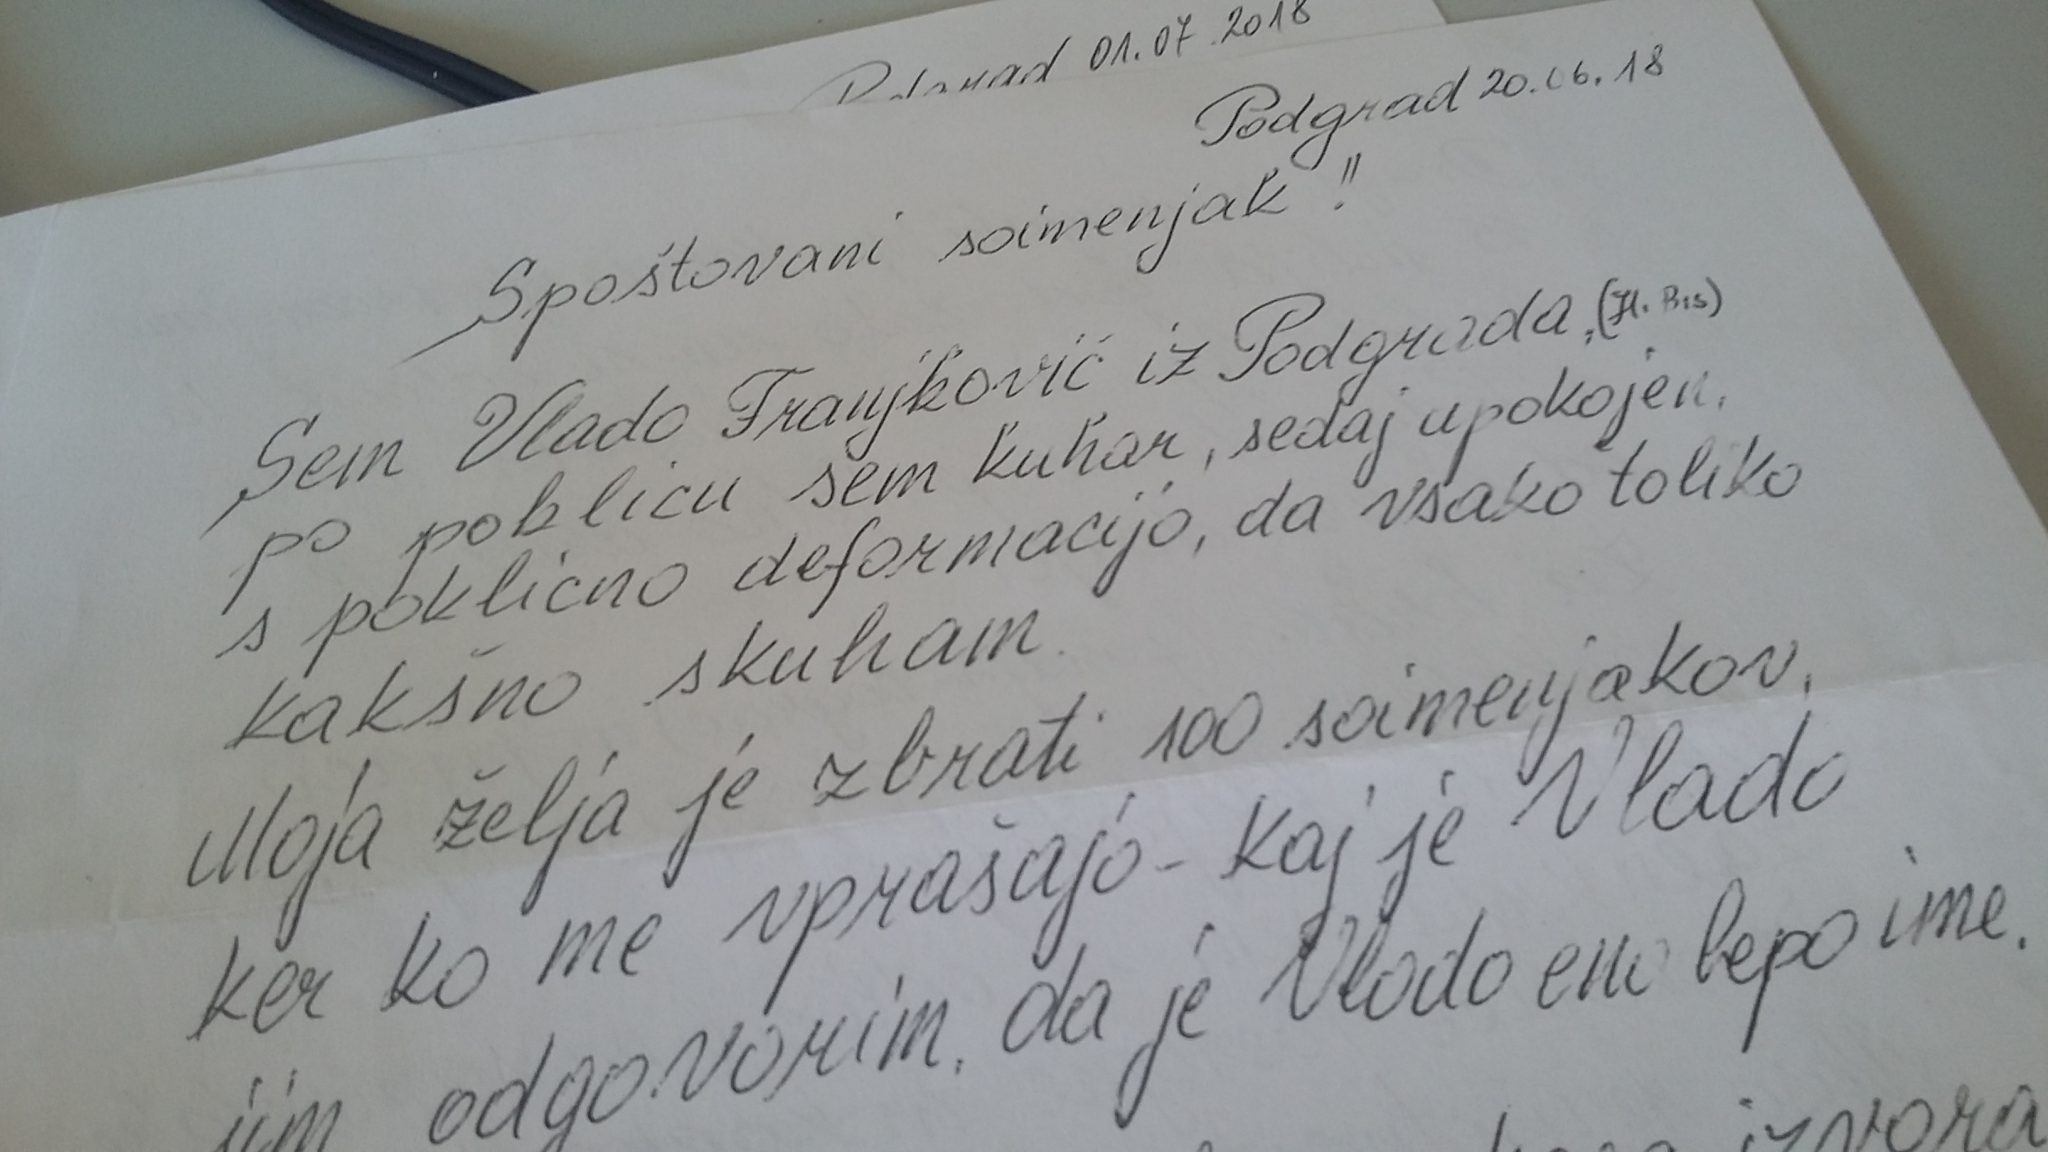 01.07.2018
Podgrad 20.06.18
Spoštovani soimenjak!!
Sem Vlado Franjković iz Podgrada, (Il. Bis)
po poklicu sem kuhar, sedaj upokojen,
s poklicno deformacijo, da vsako toliko
kakšno skuham.
Moja želja je zbrati 100 soimenjakov,
ker ko me vprašajo - kaj je Vlado
jim odgovorim, da je Vlado eno lepo ime.
izvora